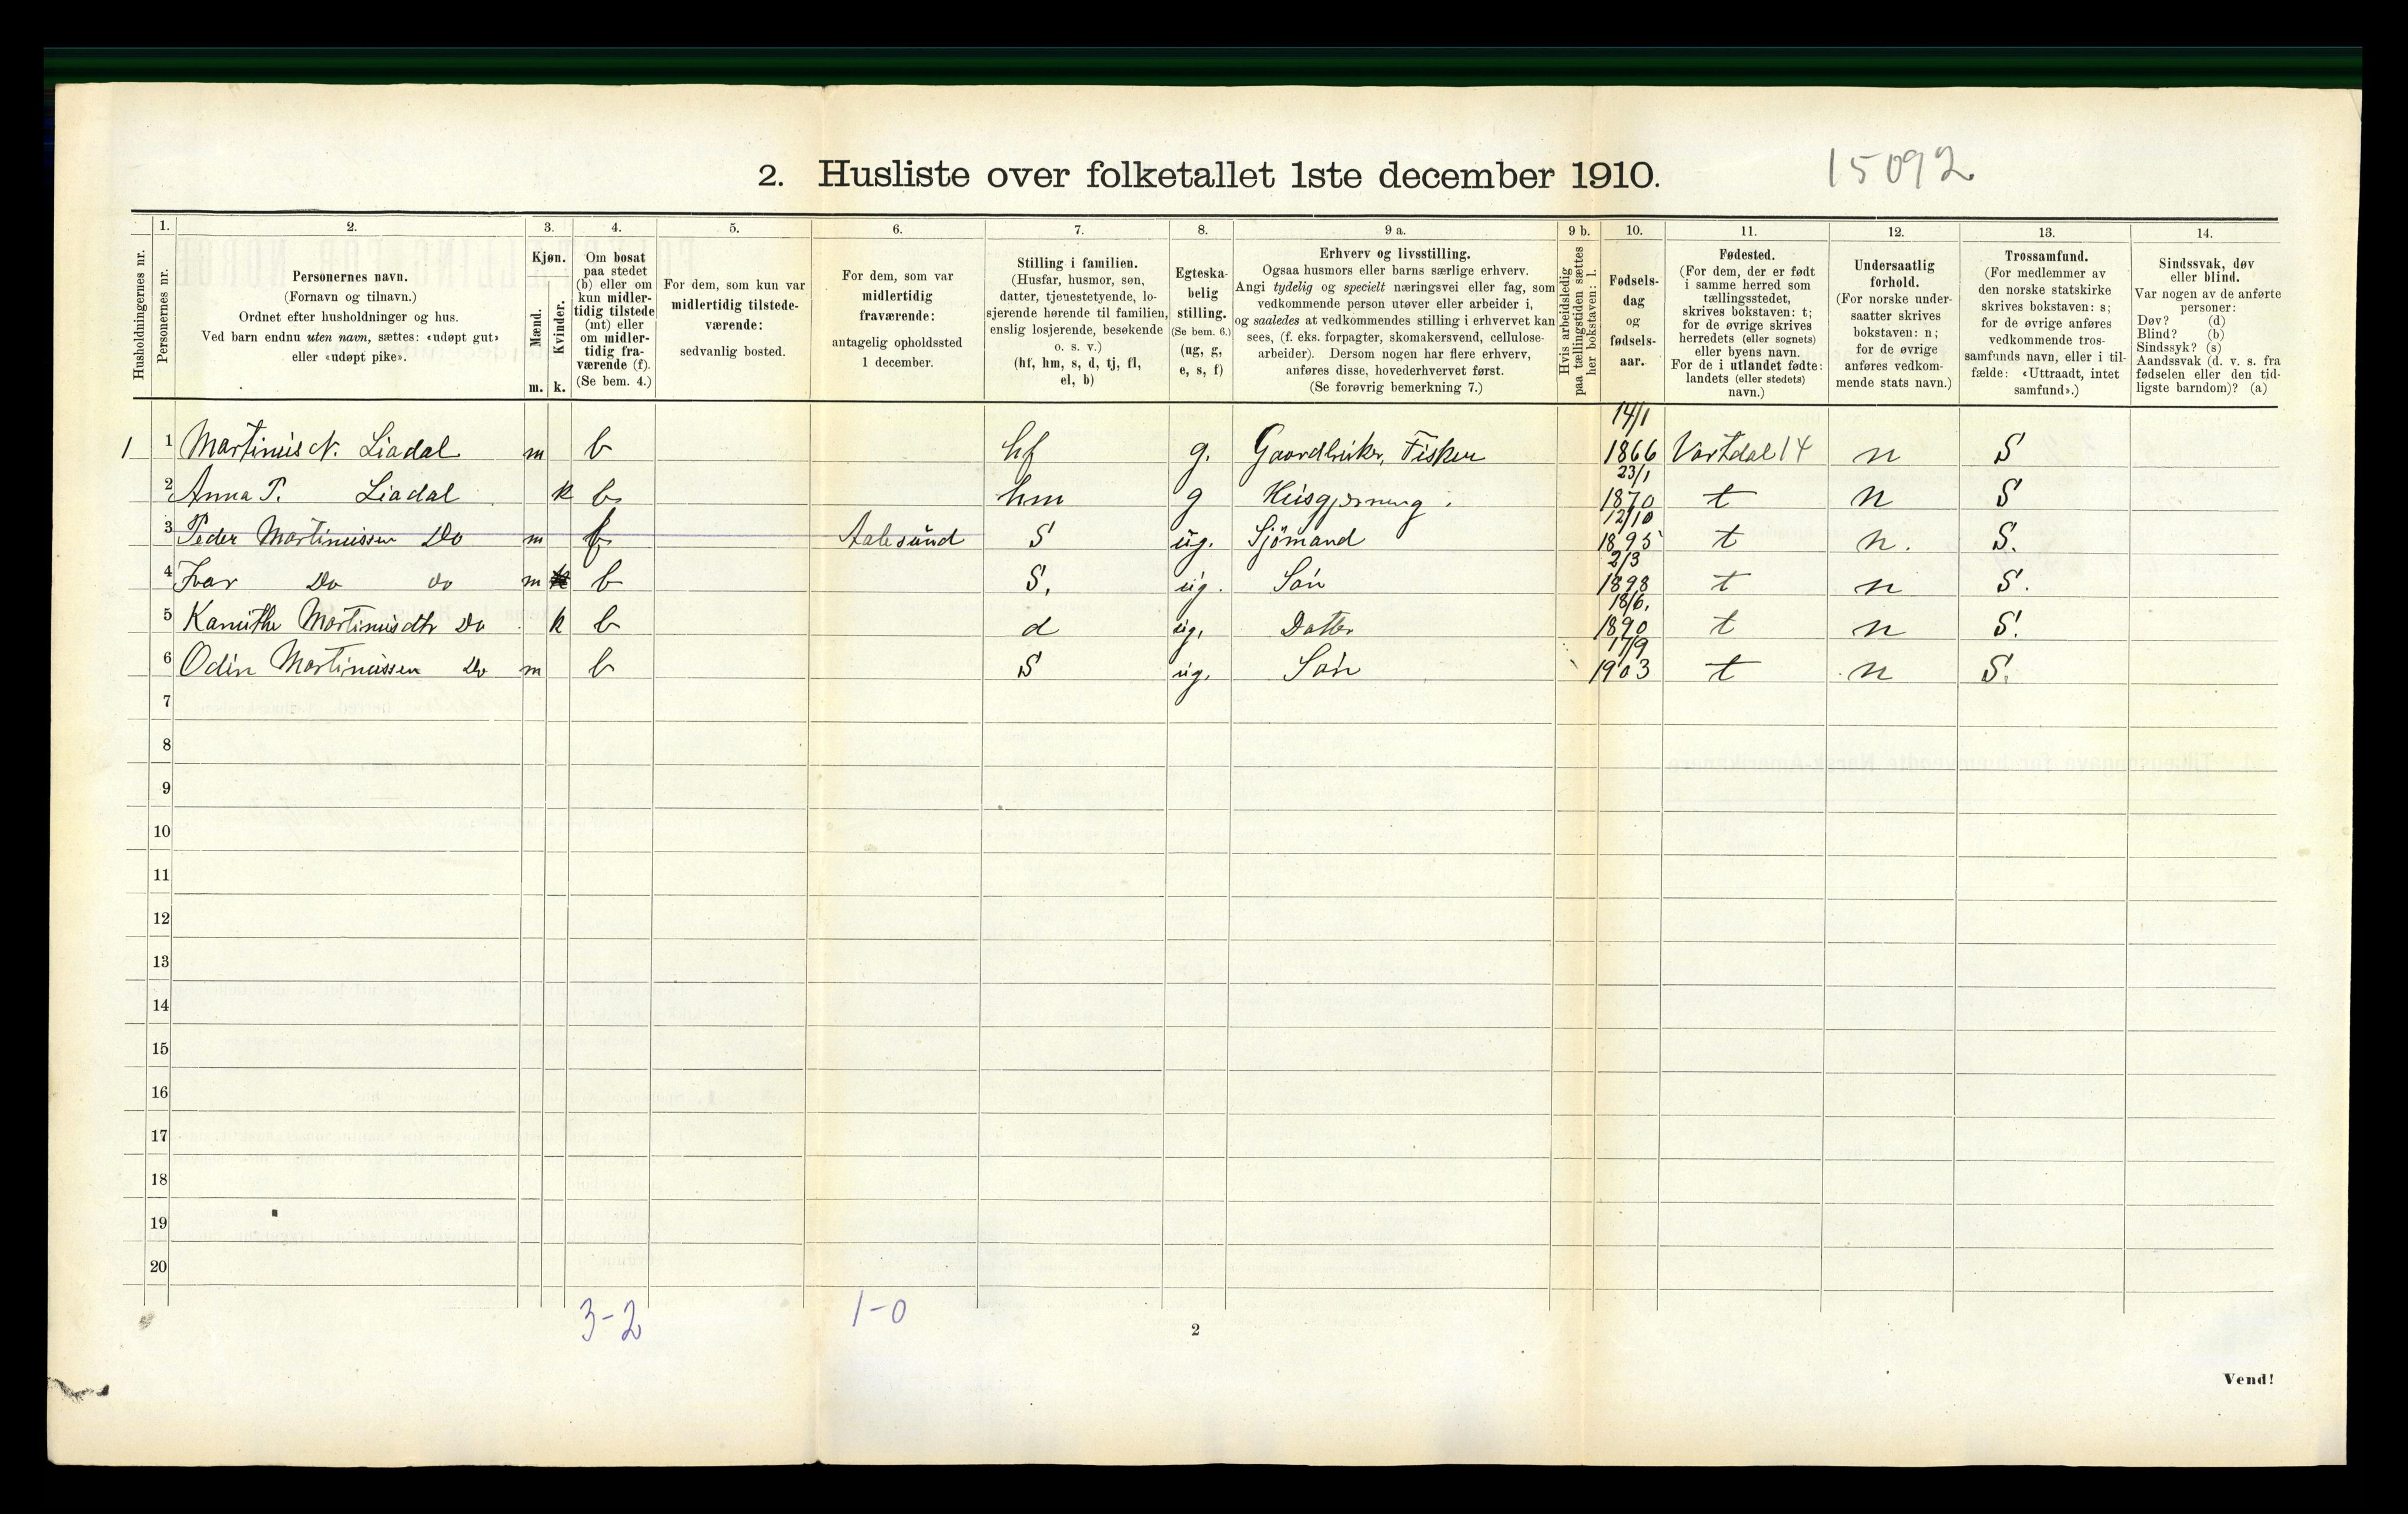 2. Husliste over folketallet 1ste december 1910.
15092
Husholdningernes nr.
1.
Personernes nr.
2.
Personernes navn.
(Fornavn og tilnavn.)
Ordnet efter husholdninger og hus.
Ved barn endnu uten navn, sættes: «udøpt gut»
eller «udøpt pike».
3.
Kjøn.
Mænd.
m.
Kvinder.
k.
4.
Om bosat
paa stedet
(b) eller om
kun midler-
tidig tilstede
(mt) eller
om midler-
tidig fra-
værende (f).
(Se bem. 4.)
5.
For dem, som kun var
midlertidig tilstede-
værende:
sedvanlig bosted.
6.
For dem, som var
midlertidig
fraværende:
antagelig opholdssted
1 december.
7.
Stilling i familien.
(Husfar, husmor, søn,
datter, tjenestetyende, lo-
sjerende hørende til familien,
enslig losjerende, besøkende
o. s. v.)
(hf, hm, s, d, tj, fl,
el, b)
8.
Egteska-
belig
stilling.
(Se bem. 6.)
(ug, g,
e, s, f)
9 a.
Erhverv og livsstilling.
Ogsaa husmors eller barns særlige erhverv.
Angi tydelig og specielt næringsvei eller fag, som
vedkommende person utøver eller arbeider i,
og saaledes at vedkommendes stilling i erhvervet kan
sees, (f. eks. forpagter, skomakersvend, cellulose-
arbeider). Dersom nogen har flere erhverv,
anføres disse, hovederhvervet først.
(Se forøvrig bemerkning 7.)
9 b.
Hvis arbeidsledig
paa tællingstiden sættes
her bokstaven: l.
10.
Fødsels-
dag
og
fødsels-
aar.
11.
Fødested.
(For dem, der er født
i samme herred som
tællingsstedet,
skrives bokstaven: t;
for de øvrige skrives
herredets (eller sognets)
eller byens navn.
For de i utlandet fødte:
landets (eller stedets)
navn.)
12.
Undersaatlig
forhold.
(For norske under-
saatter skrives
bokstaven: n;
for de øvrige
anføres vedkom-
mende stats navn.)
13.
Trossamfund.
(For medlemmer av
den norske statskirke
skrives bokstaven: s;
for de øvrige anføres
vedkommende tros-
samfunds navn, eller i til-
fælde: «Uttraadt, intet
samfund».)
14.
Sindssvak, døv
eller blind.
Var nogen av de anførte
personer:
Døv? (d)
Blind? (b)
Sindssyk? (s)
Aandssvak (d. v. s. fra
fødselen eller den tid-
ligste barndom)? (a)
1 1 Martinus N. Liadal m b hf g. Gaardbruker, Fisker 14/1 1866 Vartdal 14 n S
2 Anna P. Liadal k b hm g Husgjerning. 23/1 1870 t n S
3 Peder Martinussen Do m f Aalesund S ug. Sjömand 12/10 1895 t n. S.
4 Ivar Do do m b S, ug. Søn 2/3 1898 t n S.
5 Kamithe Martinusdtr Do k b d ug, Datter 18/6, 1890 t n S.
6 Odin Martinussen Do m b S ug. Søn 17/9 1903 t n S.
7
8
9
10
11
12
13
14
15
16
17
18
19
20
3-2 1-0
2
Vend!